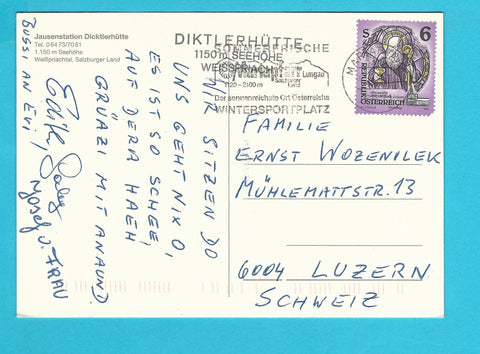 Jausenstation Dicktlerhütte
Tel. 06473/7061
1.150 m Seehöhe
Weißpriachtal, Salzburger Land
DIKTLERHÜTTE
1150 m SEEHÖHE
WEISSPRIACH
SOMMERFRISCHE
Lungau
Salzburger
Land
1120-2100 m
Der sonnenreichste Ort Österreichs
WINTERSPORTPLATZ
S 6
REPUBLIK
ÖSTERREICH
MIR SITZEN DO
UNS GEHT NIX O,
ES IST SO SCHEE,
AUF DERA HAEH
GRÜAZI MIT ANAUND!
BUSSI AN EVI
Josef u. FRAU
FAMILIE
ERNST WOZENILEK
MÜHLEMATTSTR. 13
6004 LUZERN
SCHWEIZ